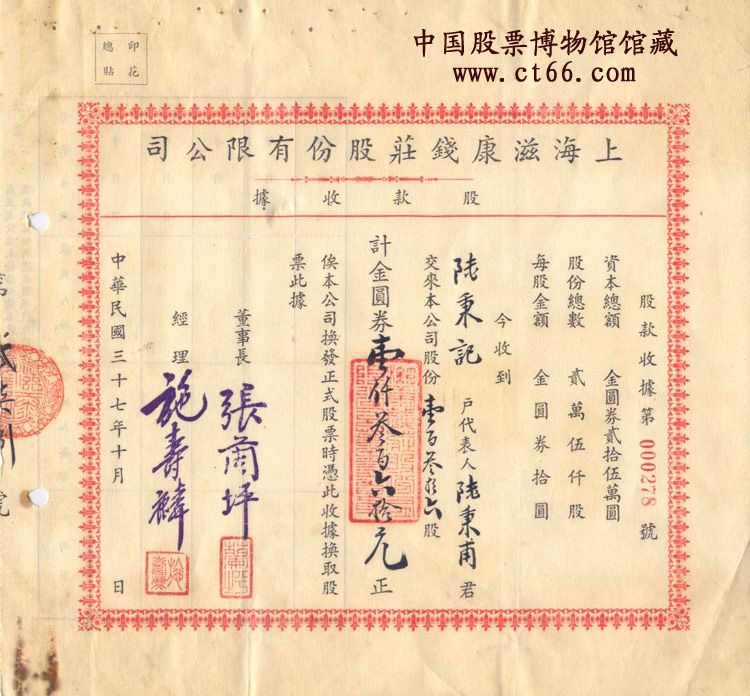 中国股票博物馆馆藏
www.ct66.com
印花
總貼
上海滋康錢莊股份有限公司
股款收據
股款收據第 000278 號
資本總額 金圓券貳拾伍萬圓
股份總數 貳萬伍仟股
每股金額 金圓券拾圓
今收到
陸秉記 戶代表人 陸秉甫 君
交來本公司股份 壹百叁拾六 股
計金圓券 壹仟叁百六拾元 正
俟本公司換發正式股票時憑此收據換取股
票此據
董事長 張蘭坪
經理 施壽麟
中華民國三十七年十月 日